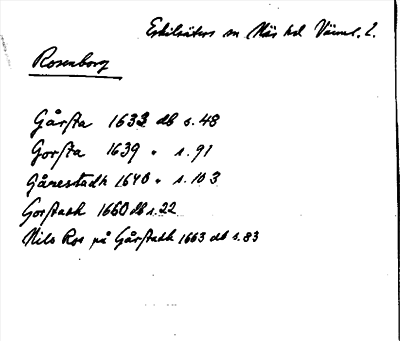 Eskilsäters sn Näs hd Värml. l.
Rosenborg
Gårsta 1633 db s. 48
Gorsta 1639 " s. 91
Gånestadh 1640 " s. 103
Gorstadh 1660 db s. 22
Nils Ros på Gårstadh 1663 db s. 83